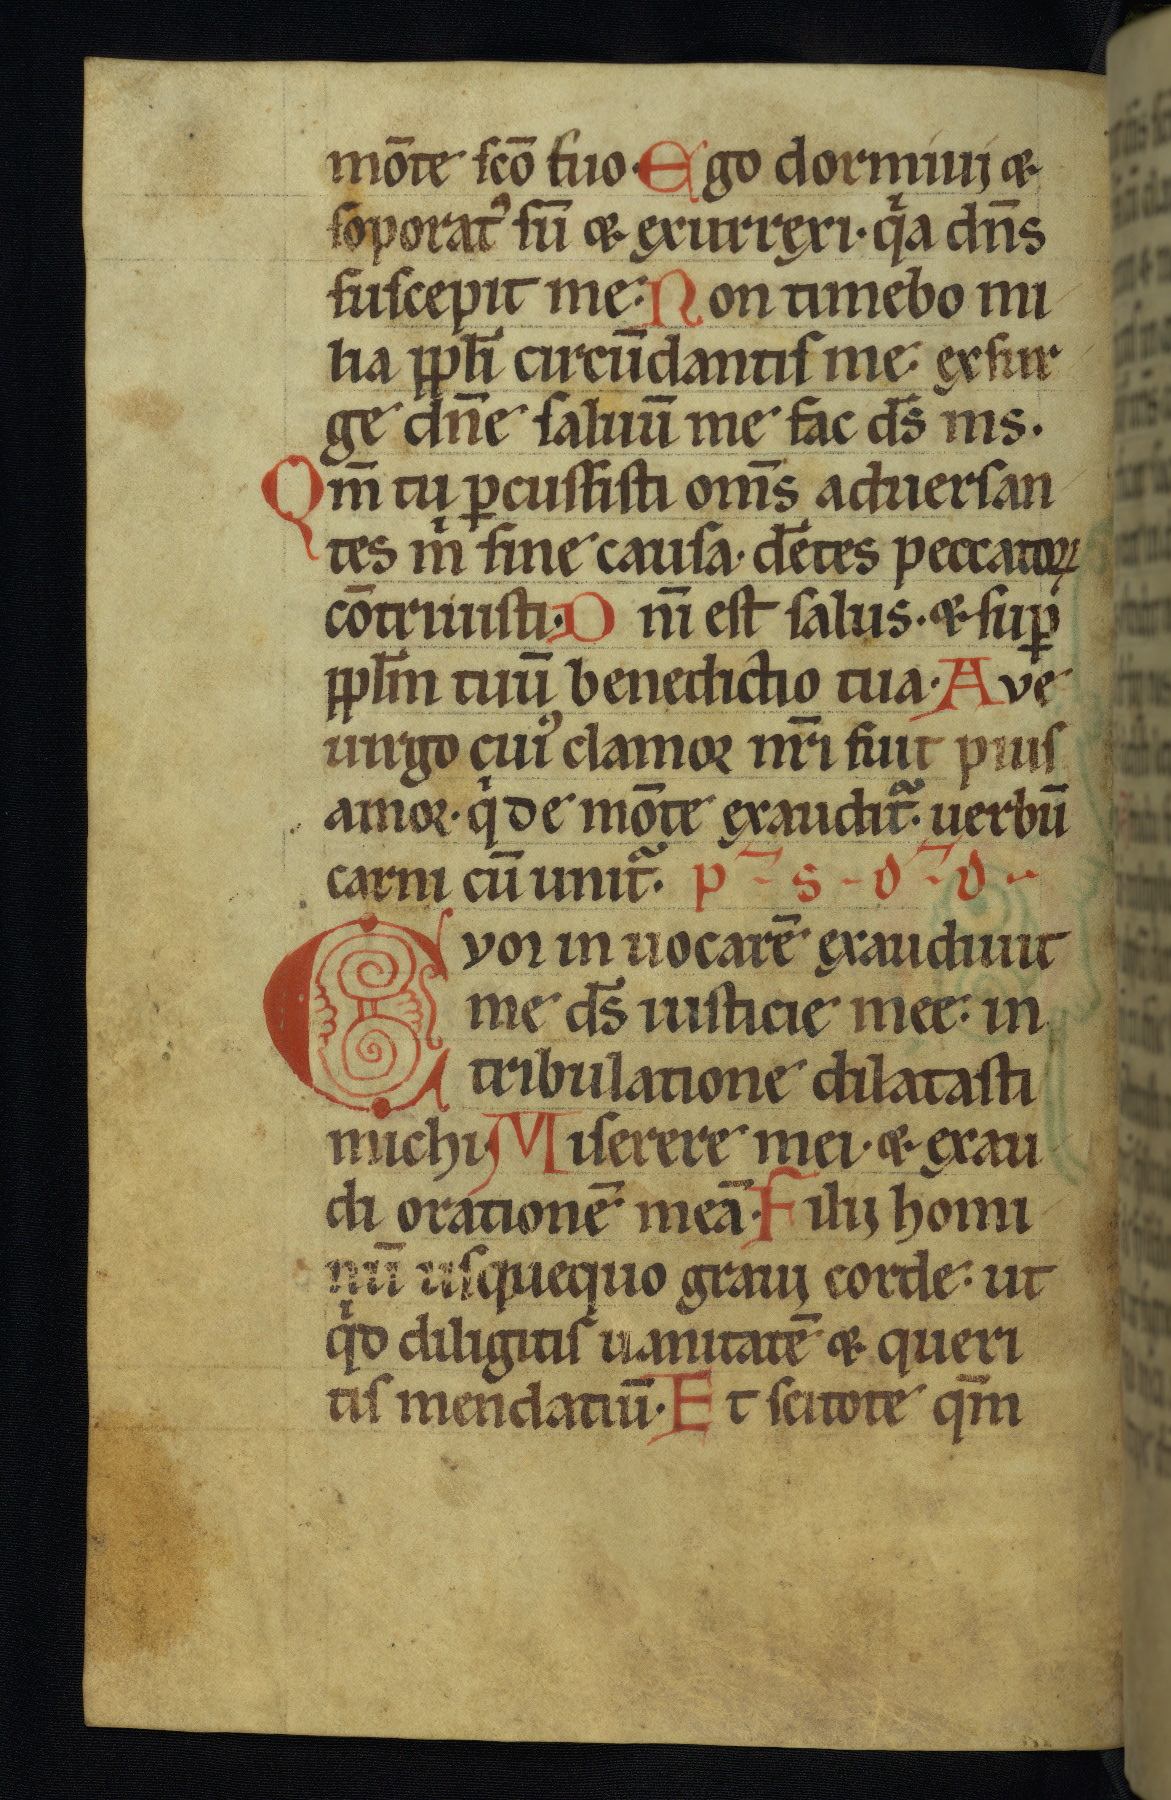 mōte ſcō ſuo· Ego dormiuj &
ſoporatꝰ ſū & exurrexi· qͥa dn̄s
ſuſcepit me: Non timebo mi
lia pp̄li circūdantiſ me: exſur
ge dn̄e ſaluū me fac ds̄ ms·
Qm̄ tu ꝑcuſſiſti om̄s aduerſan
tes m̄ ſine cauſa· dētes peccatoꝝ
cōtriuiſti· D nī eſt ſalus· & ſuꝑ
pp̄lm tuū benedictio tua· Ave
uirgo cuiꝰ clamor nr̄i fuit pius
amor· qͥ de mōte exauditᷓ· uerbū
carni cū unitᷓ· p s d d
C vm inuocarē exaudiuit
me ds̄ iuſticie mee: in
tribulatione dilataſti
michi· Miſerere mei· & exau
di orationē meā· Filij homi
nū uſquequo graui corde: ut
qͥd diligitiſ uanitatē & queri
tiſ mendatiū· Et ſcitote qm̄